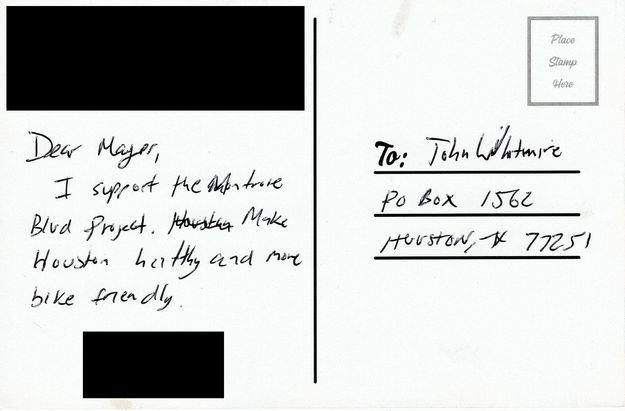 Dear Mayor,
I support the Montrose
Blvd Project. Houston Make
Houston halthy and more
bike friendly.
Place
Stamp
Here
To: John Whitmire
PO Box 1562
Houston, TX 77251